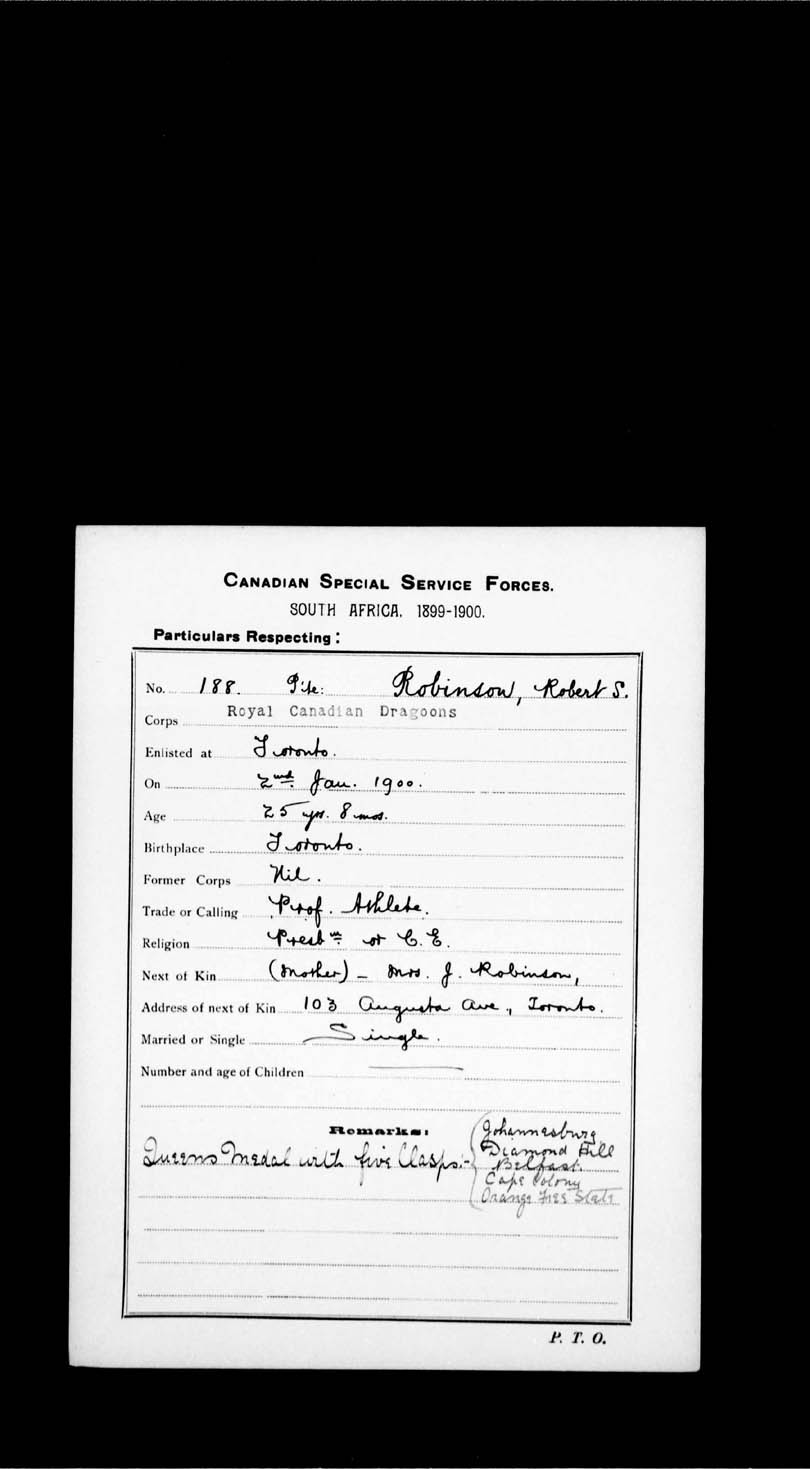 CANADIAN SPECIAL SERVICE FORCES.
SOUTH AFRICA. 1899-1900.
Particulars Respecting:
No. 188. Pte: Robinson, Robert S.
Corps Royal Canadian Dragoons
Enlisted at Toronto.
On 2nd. Jan. 1900.
Age 25 yrs. 8 mos.
Birthplace Toronto.
Former Corps Nil.
Trade or Calling Prof. Athlete.
Religion Presbn or C.E.
Next of Kin (Mother) - Mrs. J. Robinson,
Address of next of Kin 103 Augusta Ave., Toronto.
Married or Single Single.
Number and age of Children —
Remarks:
Queens Medal with five Clasps:- Johannesburg
Diamond Hill
Belfast.
Cape Colony
Orange Free State
P. T. O.